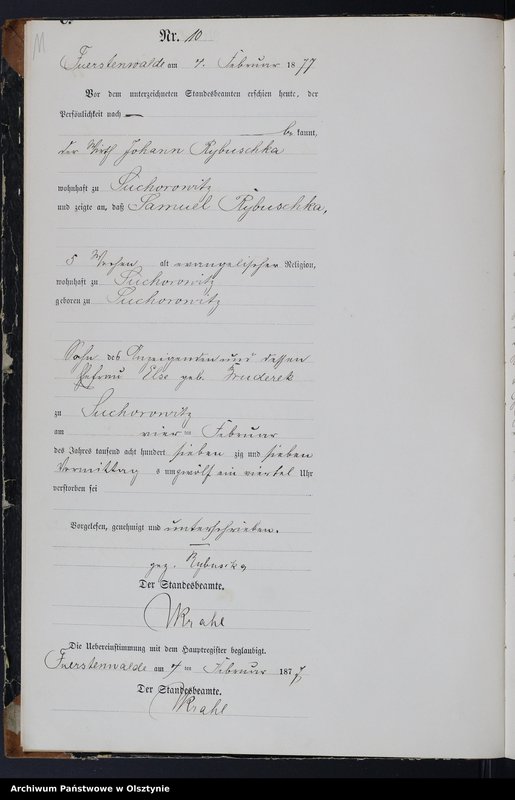 C.
Nr. 10
Fuerstenwalde am 7. Februar 1877
Vor dem unterzeichneten Standesbeamten erschien heute, der
Persönlichkeit nach
bekannt,
der Wirth Johann Rybuschka
wohnhaft zu Suchorowitz
und zeigte an, daß Samuel Rybuschka,
5 Wochen alt evangelischer Religion,
wohnhaft zu Suchorowitz
geboren zu Suchorowitz
Sohn des Anzeigenden und dessen
Ehefrau Else geb.
zu Suchorowitz
am vier ten Februar
des Jahres tausend acht hundert sieben zig und sieben
Vormittag s um zwölf ein viertel Uhr
verstorben sei
Vorgelesen, genehmigt und unterschrieben.
gez.
Der Standesbeamte.
Krahl
Die Uebereinstimmung mit dem Hauptregister beglaubigt.
Fuerstenwalde am 7 ten Februar 1877
Der Standesbeamte.
Krahl
Archiwum Państwowe w Olsztynie